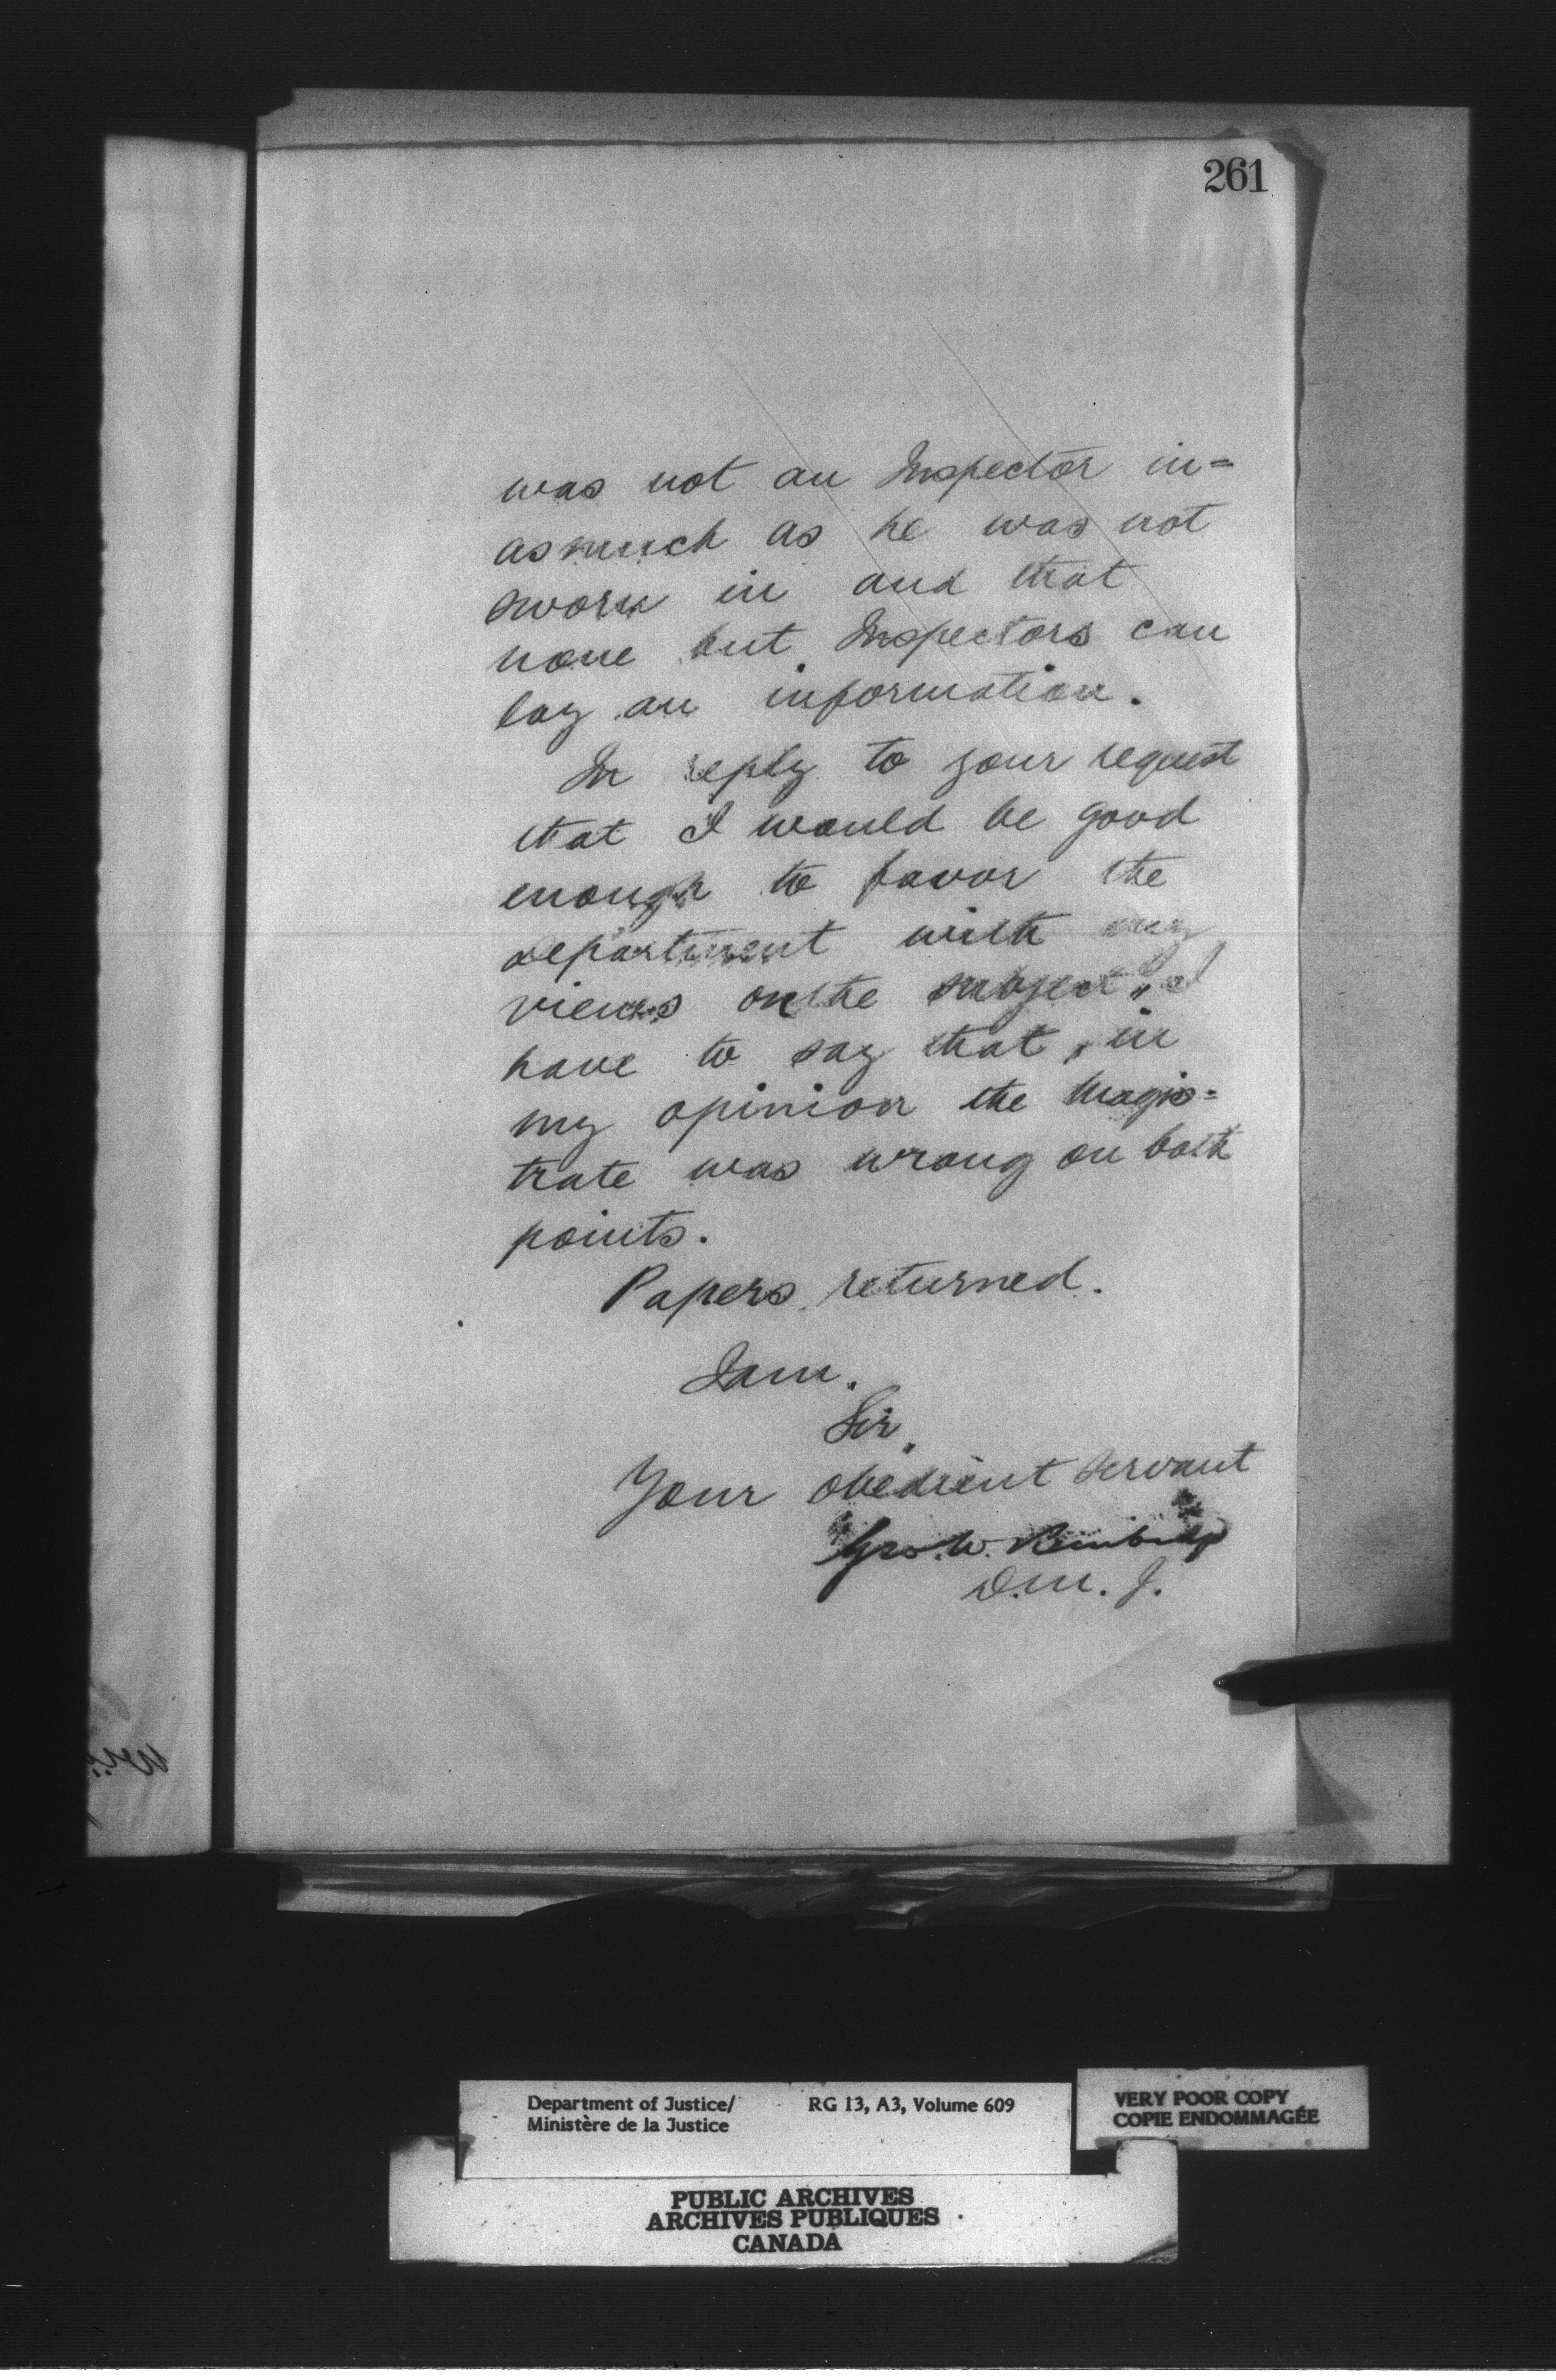 261
was not an Inspector in=
asmuch as he was not
sworn in and that
none but Inspectors can
lay an information.
In reply to your request
that I would be good
enough to favor the
department with my
views on the subject, I
have to say that, in
my opinion the Magis=
trate was wrong on both
points.
Papers returned.
I am.
Sir,
Your obedient servant
Geo. W. Burbidge
D.M.J.
Department of Justice/
Ministère de la Justice
RG 13, A3, Volume 609
VERY POOR COPY
COPIE ENDOMMAGÉE
PUBLIC ARCHIVES
ARCHIVES PUBLIQUES
CANADA